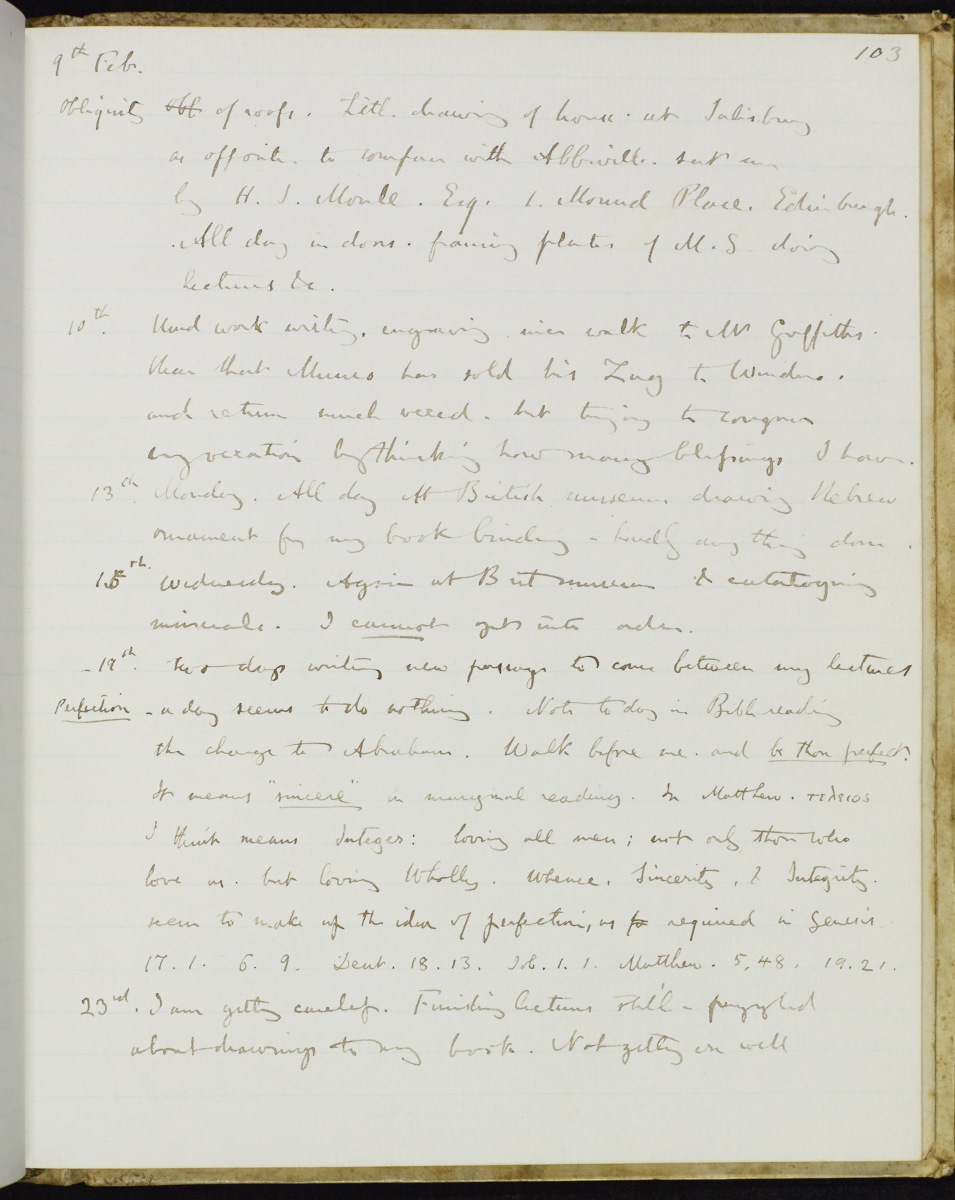 103
9th Feb.
Obliquity of roofs. Lith. drawing of house at Salisbury
as opposite. to compare with Abbeville. sent me
by H. J. Moule. Esq. 1. Mound Place. Edinburgh.
All day in doors. framing plates of M.S doing
lectures &c.
10th. Hard work writing. engraving. nice walk to Mr Griffiths.
Hear that Munro has sold his Zug to Windus.
and return much vexed. but trying to conquer
my vexation by thinking how many blessings I have.
13th. Monday. All day At British museum drawing Hebrew
ornament for my book binding - hardly any thing done.
15th. Wednesday. Again at Brit museum & cataloguing
minerals. I cannot get into order.
19th. two days writing new passage to come between my lectures
Perfection - a day seems to do nothing. Note to day in Bible reading
the charge to Abraham. Walk before me. and be thou perfect.
It means "sincere" in marginal reading. In Matthew. τελειος
I think means Integer: loving all men; not only those who
love us. but loving Wholly. Whence, Sincerity, & Integrity.
seem to make up the idea of perfection, as required in Genesis
17. 1. 6. 9. Deut. 18. 13. Job. 1. 1. Matthew. 5, 48. 19. 21.
23rd. I am getting careless. Finishing lectures still - puzzled
about drawings to my book. Not getting on well